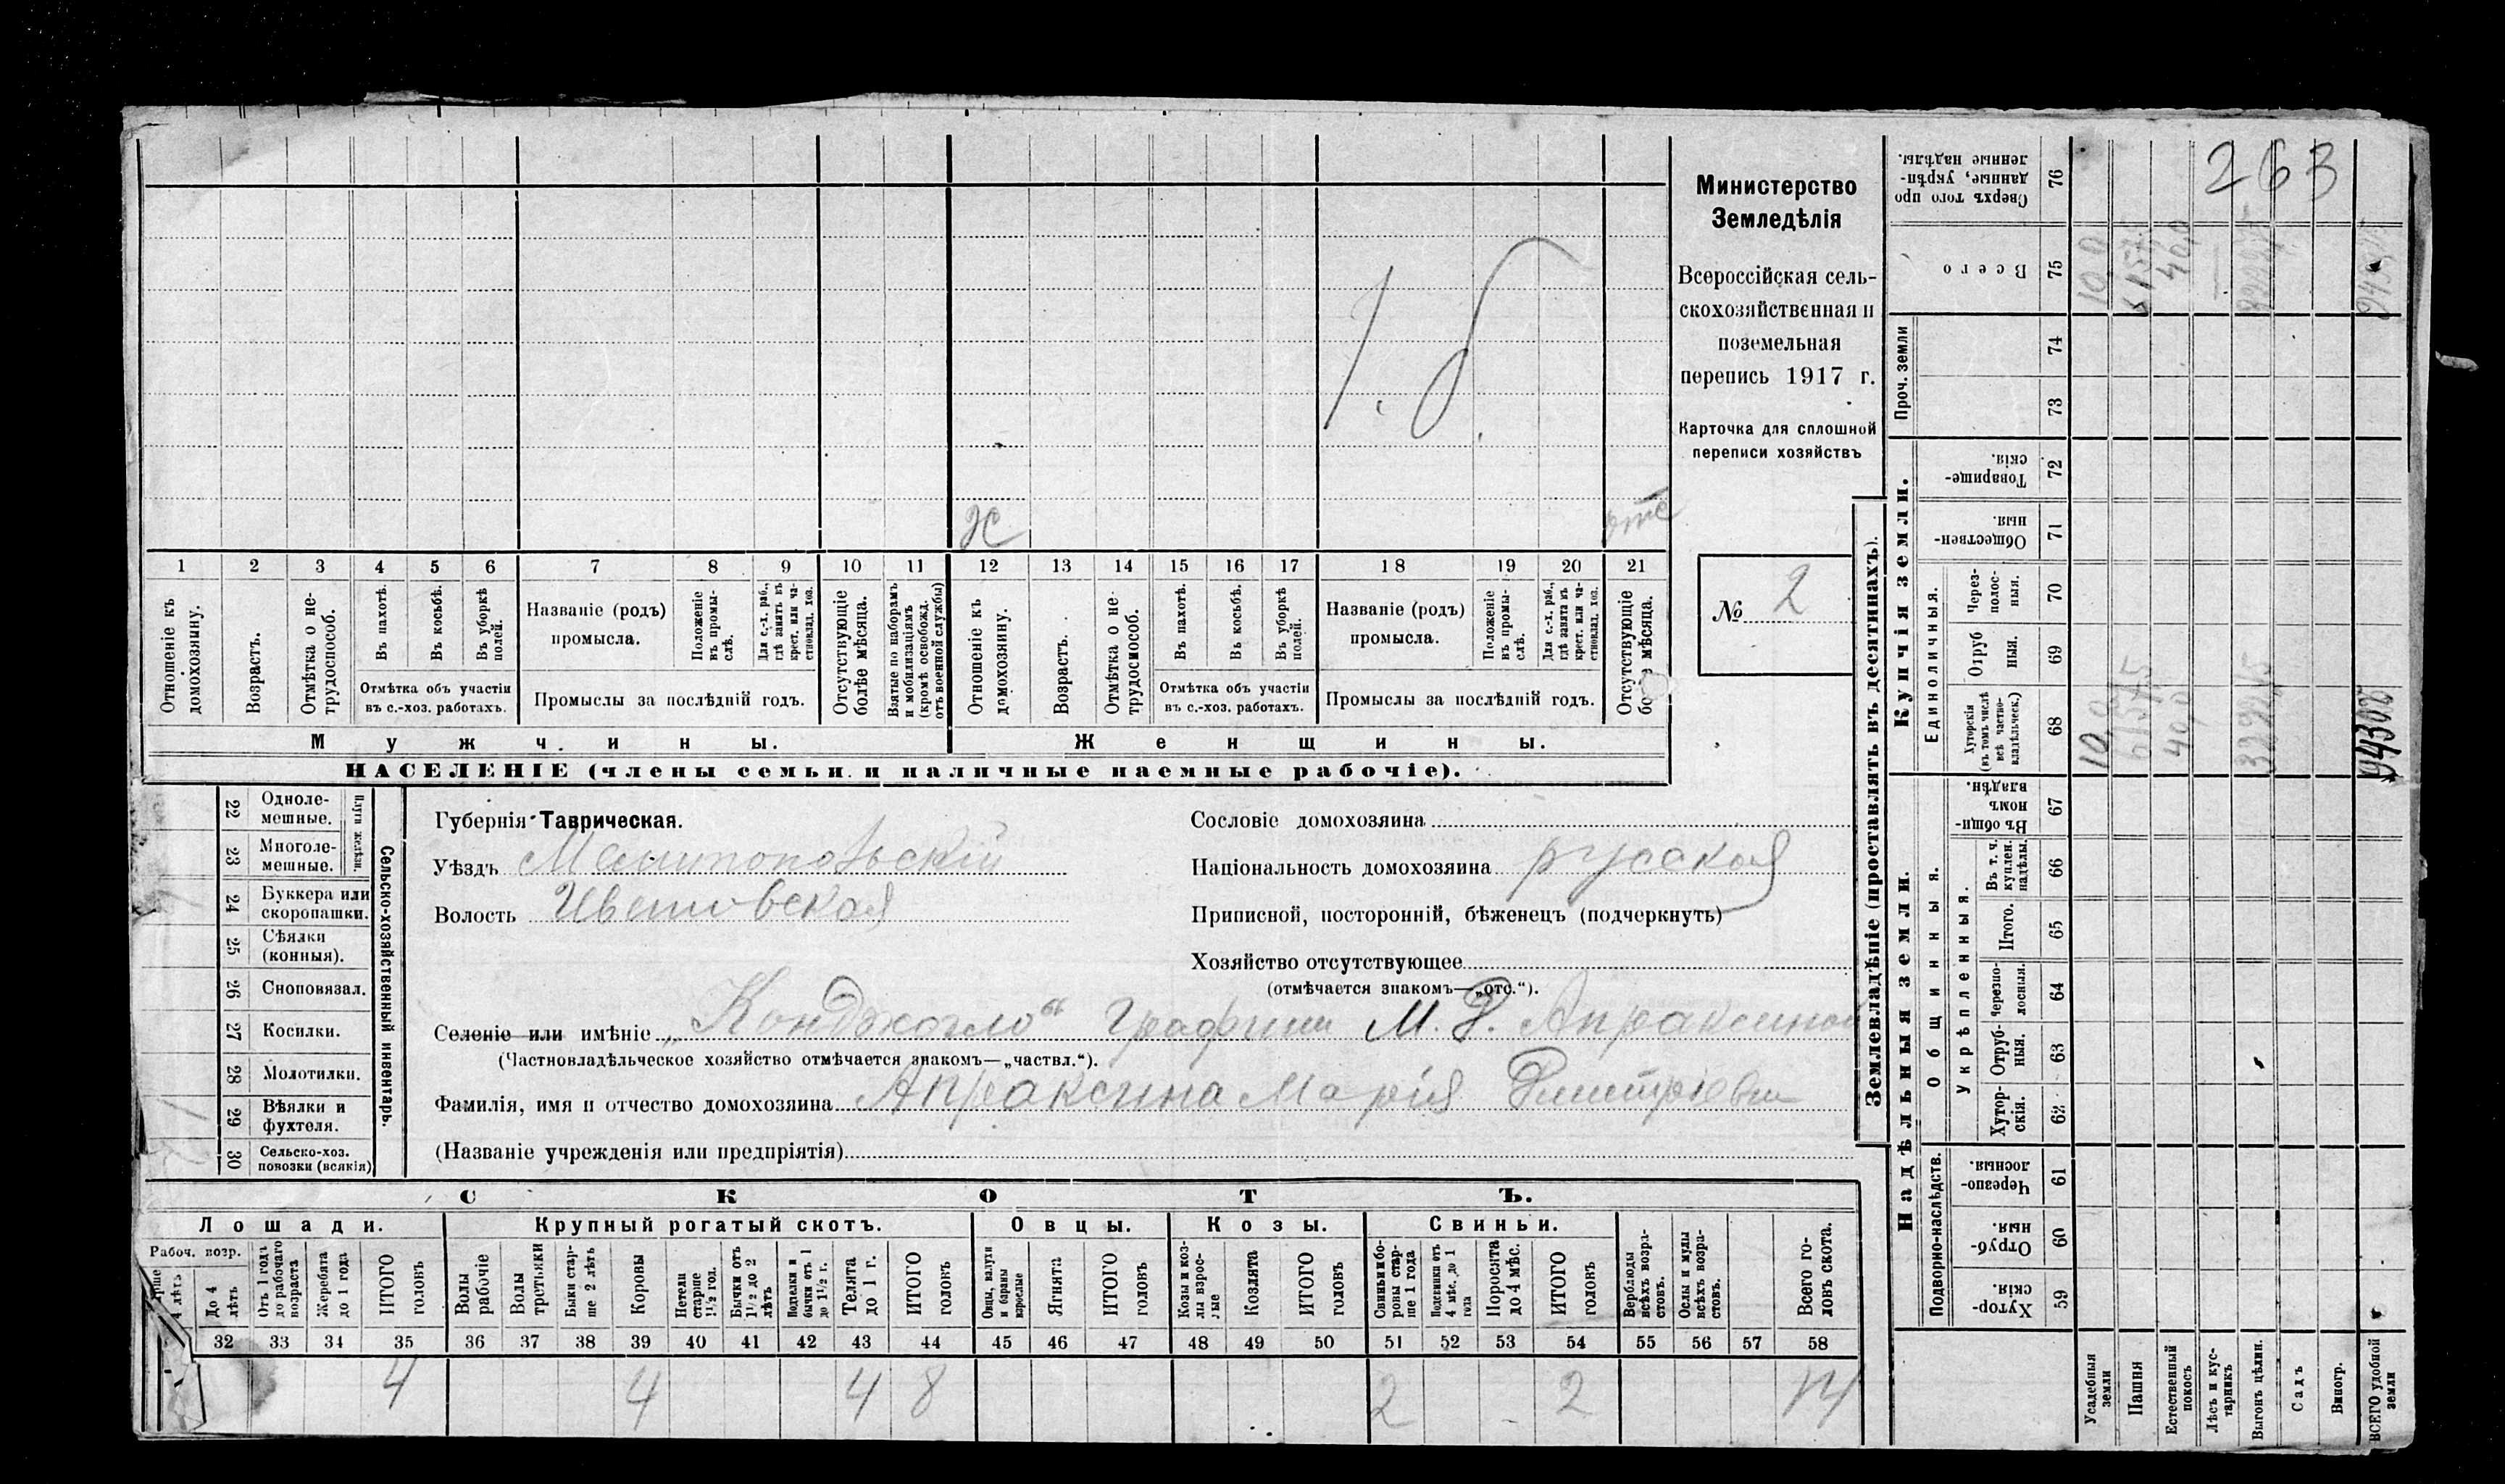 263
Министерство
Земледѣлія
Всероссійская сель-
скохозяйственная и
поземельная
перепись 1917 г.
Карточка для сплошной
переписи хозяйствъ
№ 2
Ж
отс
1 2 3 4 5 6 7 8 9 10 11 12 13 14 15 16 17 18 19 20 21
Отношеніе къ домохозяину.
Возрастъ.
Отмѣтка о не-трудоспособ.
Въ пахотѣ.
Въ косьбѣ.
Въ уборкѣ полей.
Отмѣтка объ участіи
въ с.-хоз. работахъ.
Названіе (родъ)
промысла.
Положеніе въ промы-слѣ.
Для с.-х. раб., гдѣ занятъ въ крест. или ча-стновлад. хоз.
Промыслы за послѣдній годъ.
Отсутствующіе болѣе мѣсяца.
Взятые по наборамъ и мобилизаціямъ (кромѣ освобожд. отъ военной службы)
Отношеніе къ домохозяину.
Возрастъ.
Отмѣтка о не-трудоспособ.
Въ пахотѣ.
Въ косьбѣ.
Въ уборкѣ полей.
Отмѣтка объ участіи
въ с.-хоз. работахъ.
Названіе (родъ)
промысла.
Положеніе въ промы-слѣ.
Для с.-х. раб., гдѣ занята въ крест. или ча-стновлад. хоз.
Промыслы за послѣдній годъ.
Отсутствующіе мѣсяца.
Мужчины.
Женщины.
НАСЕЛЕНІЕ (члены семьи и наличные наемные рабочіе).
Сельско-хозяйственный инвентарь.
Плуги желѣзн.
22 Одноле-мешные.
23 Многоле-мешные.
24 Буккера или скоропашки.
25 Сѣялки (конныя).
26 Сноповязал.
27 Косилки.
28 Молотилки.
29 Вѣялки и фухтеля.
30 Сельско-хоз. повозки (всякія)
Губернія Таврическая.
Уѣздъ Мелитопольскій
Волость
Сословіе домохозяина
Національность домохозяина русская
Приписной, посторонній, бѣженецъ (подчеркнуть)
Хозяйство отсутствующее
(отмѣчается знакомъ—„отс.“).
Селеніе или имѣніе „Конджогло“ Графини М. Д. Апраксиной
(Частновладѣльческое хозяйство отмѣчается знакомъ—„частвл.“).
Фамилія, имя и отчество домохозяина Апраксина Марія Дмитріевна
(Названіе учрежденія или предпріятія)
СКОТЪ.
Лошади.
Крупный рогатый скотъ.
Овцы.
Козы.
Свиньи.
Рабоч. возр.
4 лѣтъ
До 4 лѣтъ
Отъ 1 года до рабочаго возраста
Жеребята до 1 года
ИТОГО головъ
Волы рабочіе
Волы третьяки
Быки стар-ше 2 лѣтъ
Коровы
Нетели старше 1½ год.
Бычки отъ 1½ до 2 лѣтъ
Подтелки и бычки отъ 1 до 1½ г.
Телята до 1 г.
ИТОГО головъ
Овцы, валухи и бараны взрослые
Ягнята
ИТОГО головъ
Козы и коз-лы взрос-лые
Козлята
ИТОГО головъ
Свиньи и бо-ровы стар-ше 1 года
Подсвинки отъ 4 мѣс. до 1 года
Поросята до 4 мѣс.
ИТОГО головъ
Верблюды всѣхъ возра-стовъ.
Ослы и мулы всѣхъ возра-стовъ.
Всего го-ловъ скота.
32 33 34 35 36 37 38 39 40 41 42 43 44 45 46 47 48 49 50 51 52 53 54 55 56 57 58
4 4 4 8 2 2 14
Землевладѣніе (проставлять въ десятинахъ).
Купчія земли.
Проч. земли
Единоличныя.
Надѣльныя земли.
Общинныя.
Укрѣпленныя.
Подворно-наслѣдств.
76 Сверхъ того про данные, укрѣп-ленные надѣлы.
75 Всего
74
73
72 Товарище-скія.
71 Обществен-ныя.
70 Через-полос-ныя.
69 Отруб ныя.
68 Хуторскія (въ томъ числѣ всѣ частно-владѣльческ.)
67 Въ общи-номъ владѣн.
66 Въ т. ч. куплен. надѣлы.
65 Итого.
64 Черезпо-лосныя.
63 Отруб-ныя.
62 Хутор-скія.
61 Черезпо-лосныя.
60 Отруб-ныя.
59 Хутор-скія.
Усадебныя земли
Пашня
Естественный покосъ
Лѣсъ и кус-тарникъ
Выгонъ цѣлин.
Садъ
Виногр.
ВСЕГО удобной земли
10,0
40,0
10,0
40,0